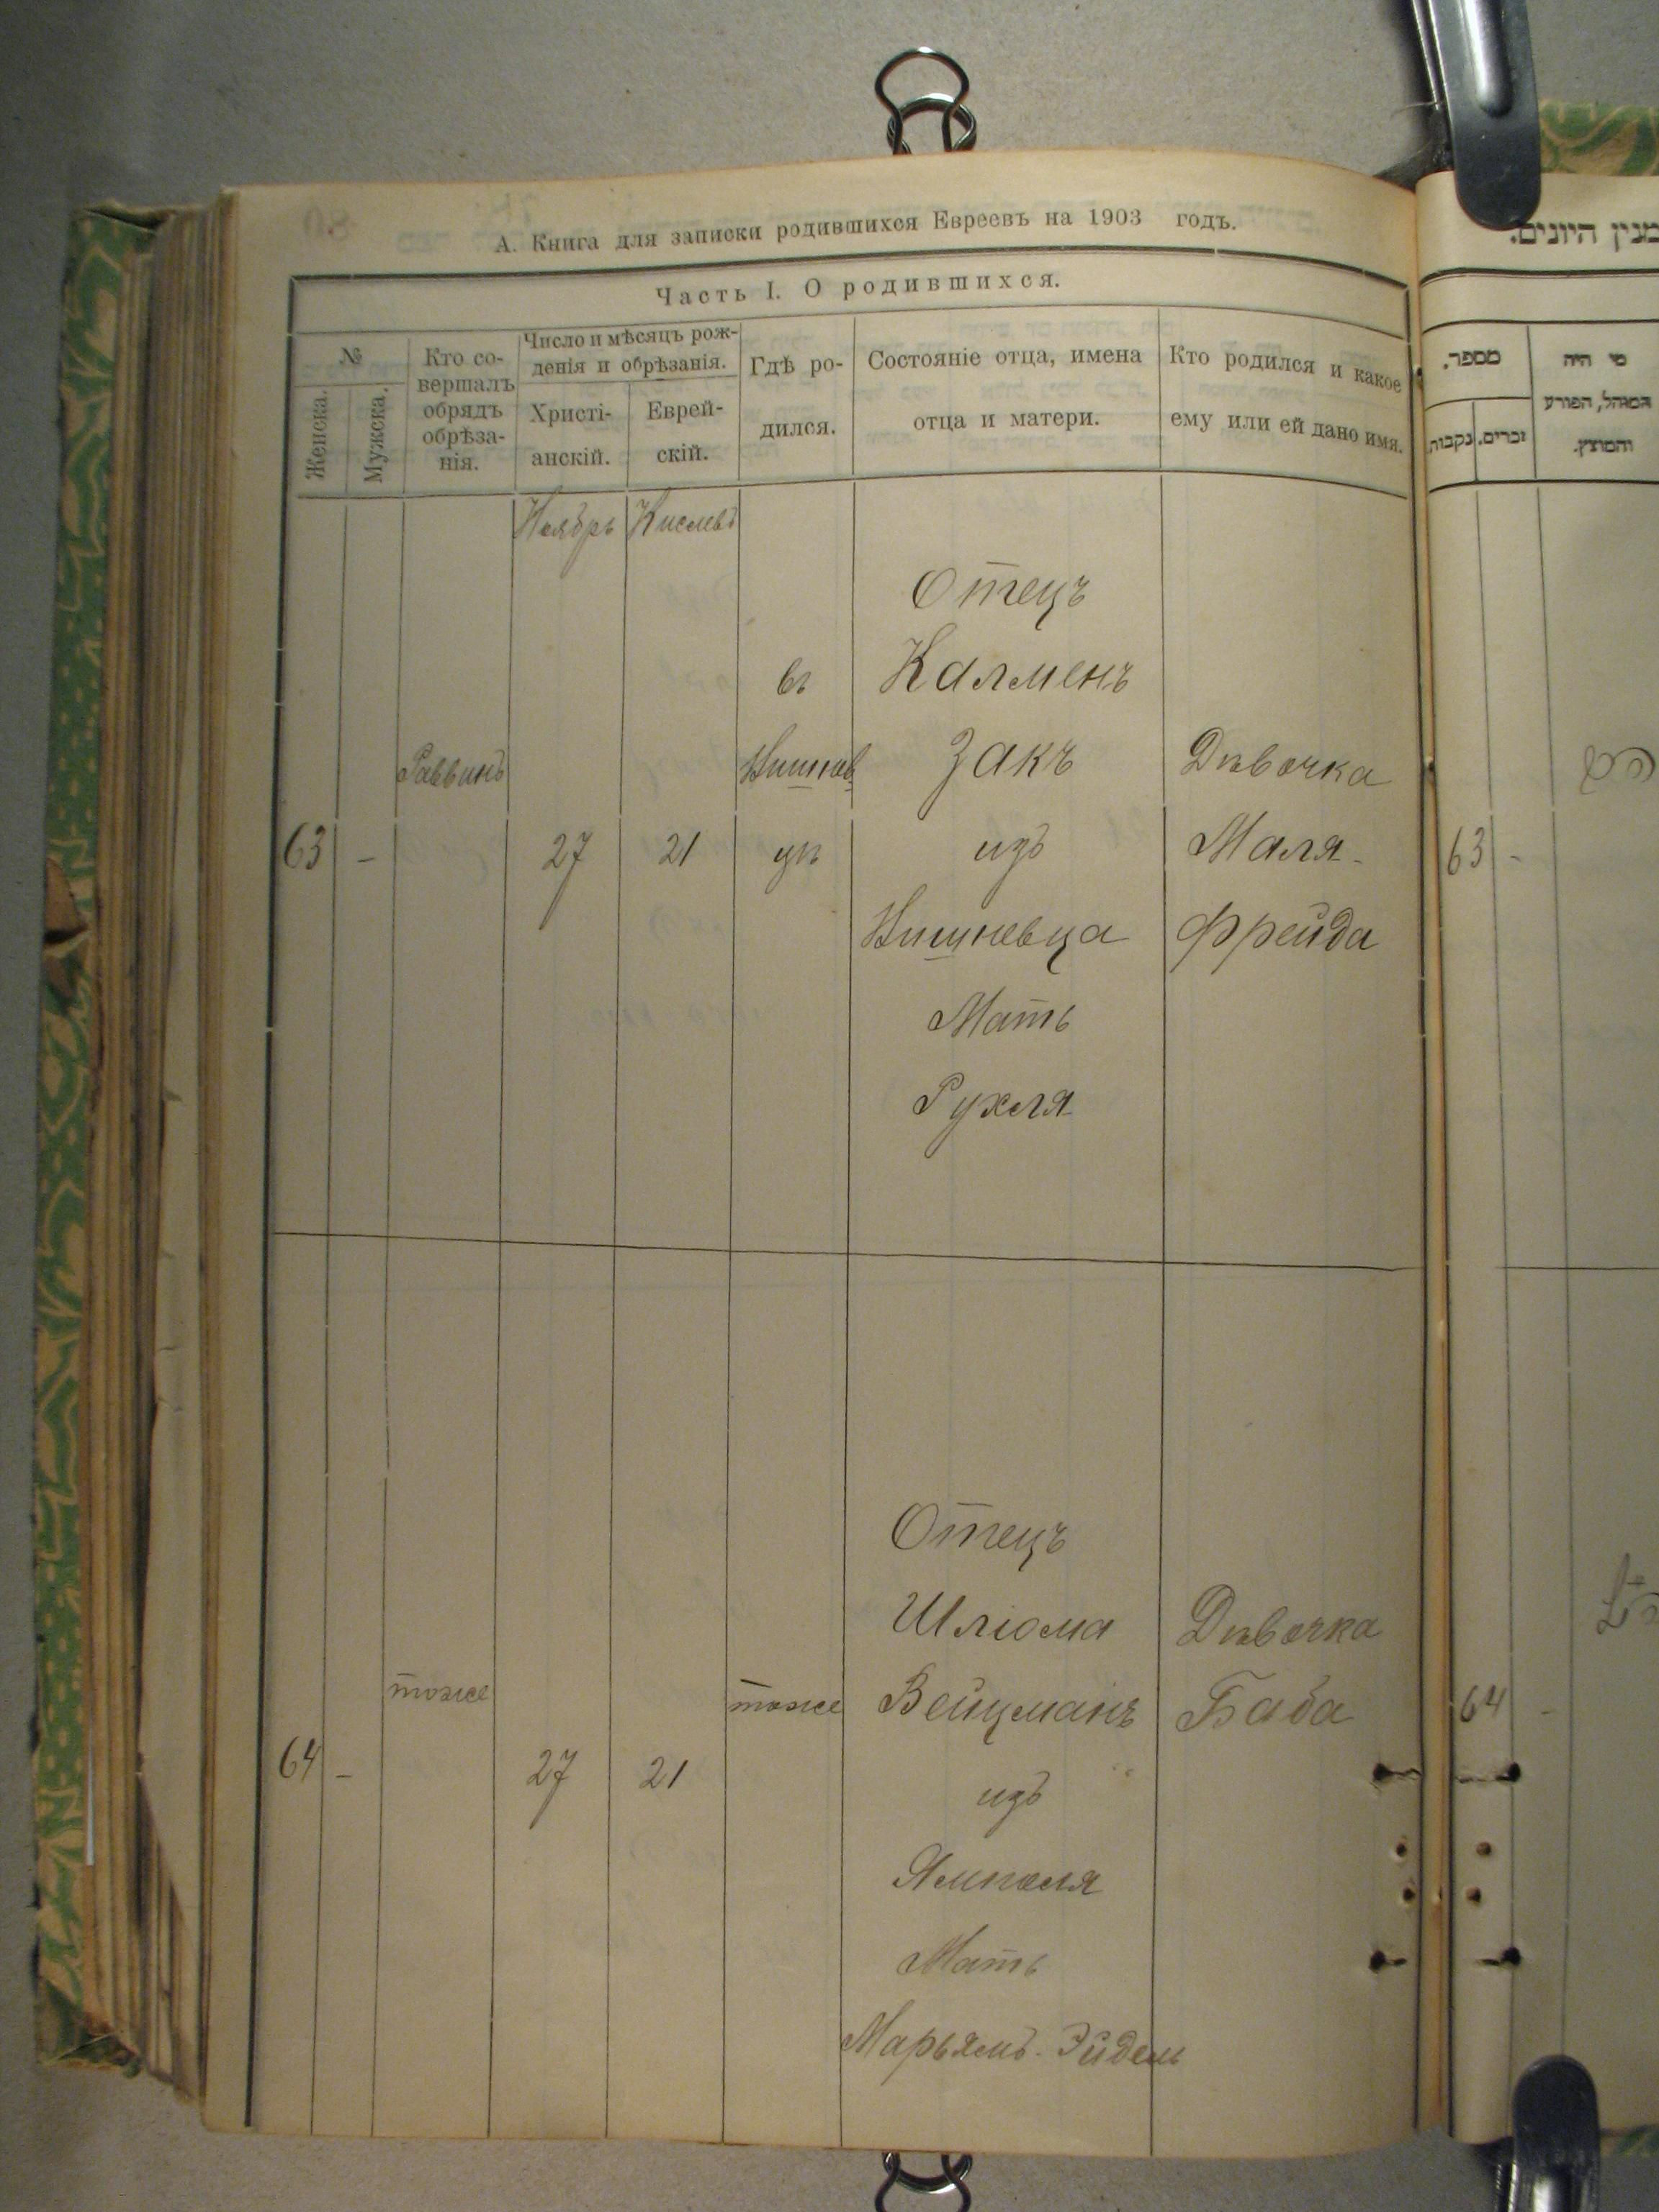 А. Книга для записки родившихся Евреевъ на 1903 годъ.
Часть I. О родившихся.
№
Женска.
Мужска.
Кто со-
вершалъ
обрядъ
обрѣза-
нія.
Число и мѣсяцъ рож-
денія и обрѣзанія.
Христі-
анскій.
Еврей-
скій.
Гдѣ ро-
дился.
Состояніе отца, имена
отца и матери.
Кто родился и какое
ему или ей дано имя.
Ноябрь Кислевъ
63 -
Раввинъ
27
21
въ
Вишнев
цѣ
Отецъ
Калменъ
Закъ
изъ
Вишневца
Мать
Рухля
Дѣвочка
Маля-
Фрейда
64 -
тоже
27
21
тоже
Отецъ
Шлиома
Вейцманъ
изъ
Ямполя
Мать
Марьямъ-Эйдель
Дѣвочка
Баба
מנין היונים.
מספר.
נקבות
זכרים.
מי היה
המוהל, הפורע
והמוצץ.
63 -
64 -